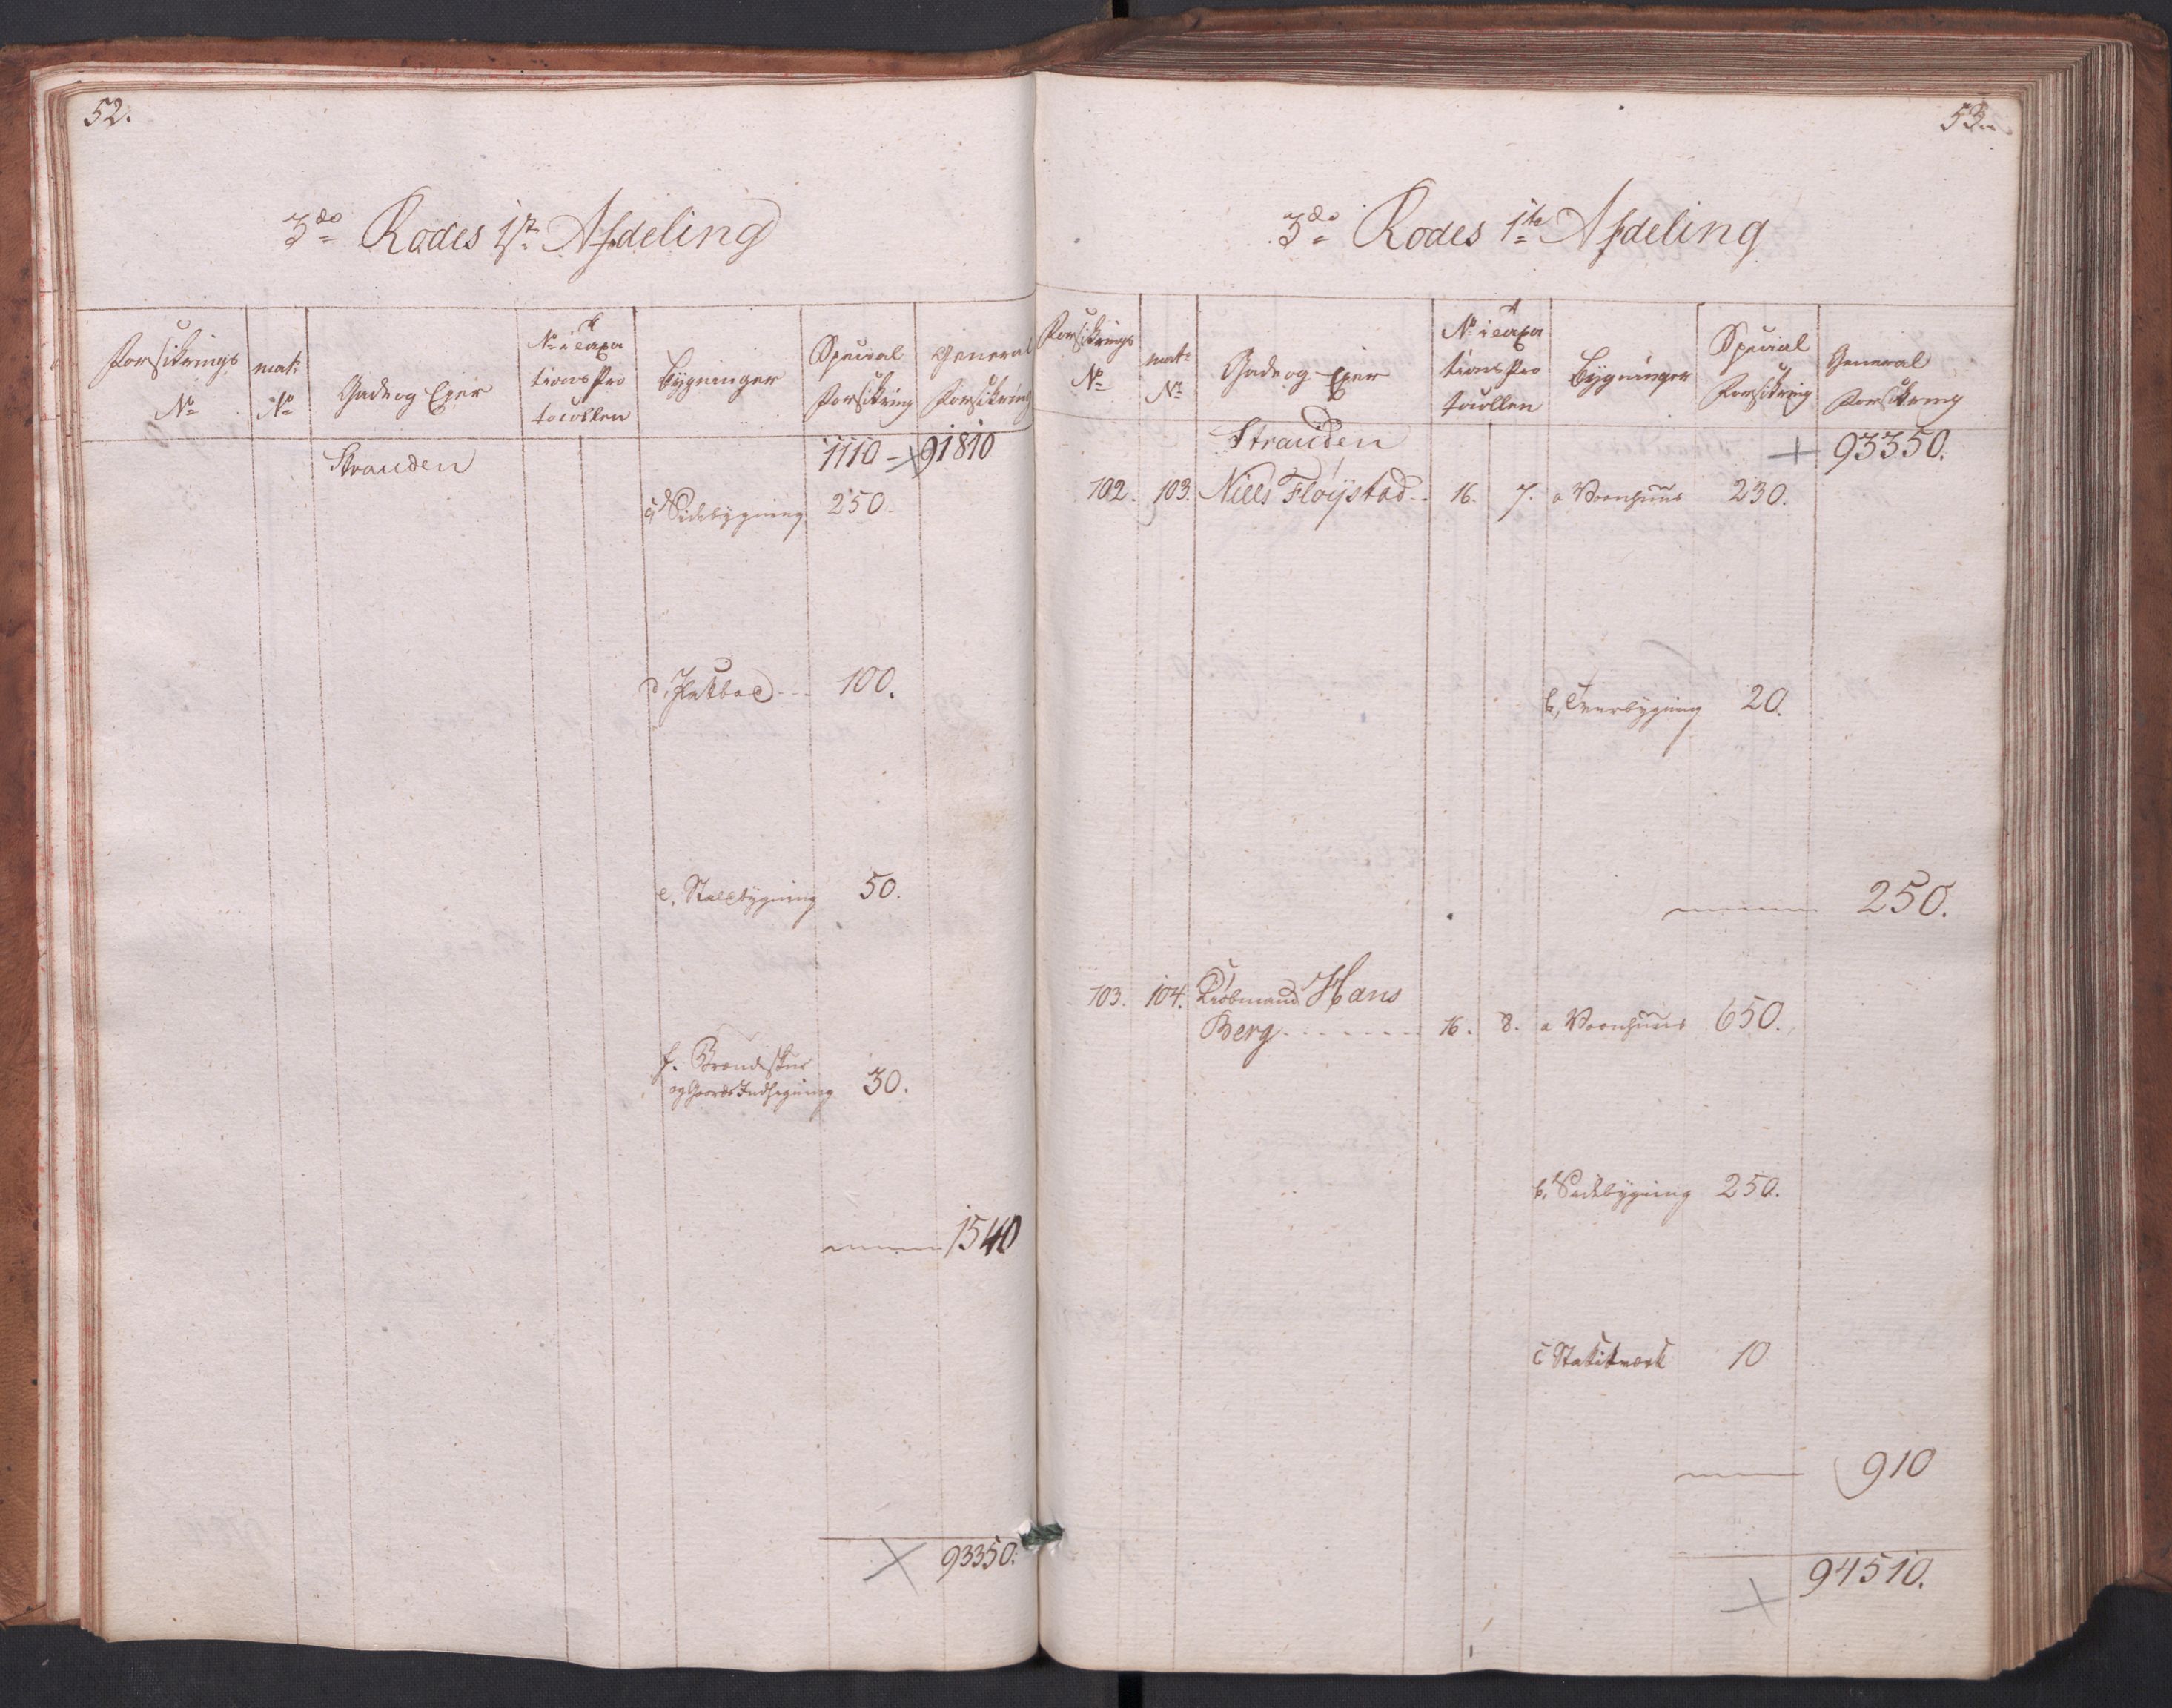 52.
3do Rodes 1st Afdeling
Forsikrings No
mat: No
Gade og Eyer
No i Taxa
tions Pro
tocollen
Bygninger
Special Forsikring
General Forsikring
Stranden 1110 - 91810
c, Sidebygning 250.
d, 100.
e, Staldbygning 50.
f. Brændeskur
og Gaards Indhegning 30.
1540
93350.
53.
3do Rodes 1te Afdeling
Forsikrings No
mat: No
Gade og Eyer
No i Taxa
tions Pro
tocollen
Bygninger
Special Forsikring
General Forsikring
Stranden 93350.
102. 103. Niels Fløystad 16. 7. a Vaanhuus 230.
b, Tverbygning 20.
250.
103. 104. Kiøbmand Hans
Berg 16. 8. a Vaanhuus 650.
b, Sidebygning 250.
c Stakitværk 10
910
94510.